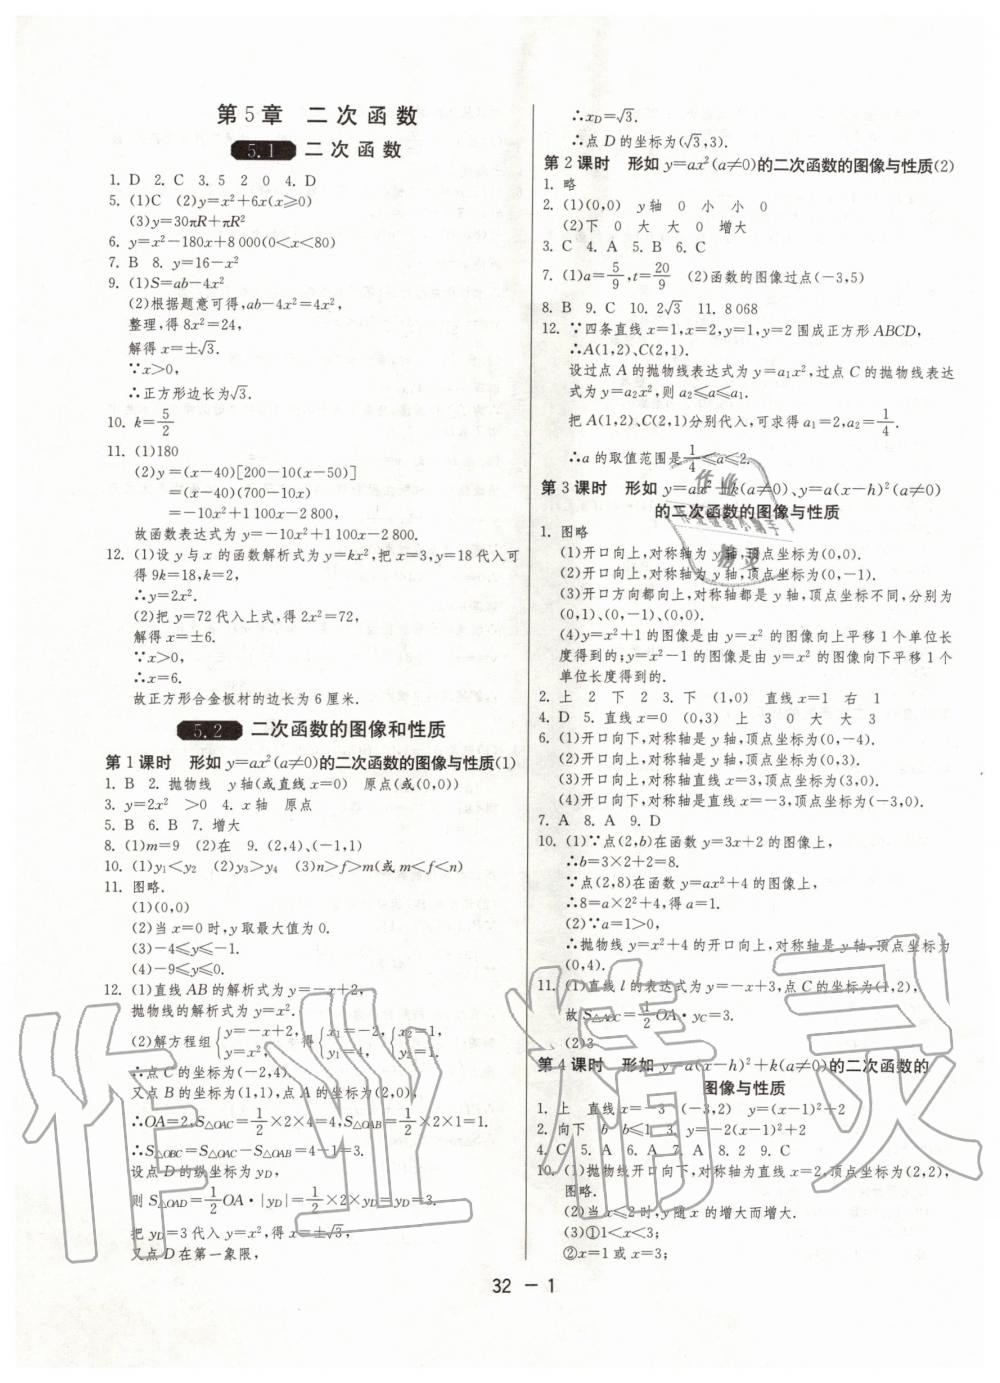 第5章 二次函数
5.1 二次函数
1. D 2. C 3. 5 2 0 4. D
5. (1)C (2)y=x²+6x(x≥0)
(3)y=30πR+πR²
6. y=x²-180x+8 000(0<x<80)
7. B 8. y=16-x²
9. (1)S=ab-4x²
(2)根据题意可得,ab-4x²=4x²,
整理,得 8x²=24,
解得 x=±√3.
∵x>0,
∴正方形边长为√3.
10. k=5/2
11. (1)180
(2)y=(x-40)[200-10(x-50)]
=(x-40)(700-10x)
=-10x²+1 100x-2 800,
故函数表达式为 y=-10x²+1 100x-2 800.
12. (1)设 y 与 x 的函数解析式为 y=kx²,把 x=3,y=18 代入可
得 9k=18,k=2,
∴y=2x².
(2)把 y=72 代入上式,得 2x²=72,
解得 x=±6.
∵x>0,
∴x=6.
故正方形合金板材的边长为 6 厘米.
5.2 二次函数的图像和性质
第1课时 形如 y=ax²(a≠0)的二次函数的图像与性质(1)
1. B 2. 抛物线 y轴(或直线x=0) 原点(或(0,0))
3. y=2x² >0 4. x轴 原点
5. B 6. B 7. 增大
8. (1)m=9 (2)在 9. (2,4)、(-1,1)
10. (1)y₁<y₂ (2)y₃>y₄ (3)n>f>m(或 m<f<n)
11. 图略.
(1)(0,0)
(2)当 x=0时,y取最大值为 0.
(3)-4≤y≤-1.
(4)-9≤y≤0.
12. (1)直线 AB 的解析式为 y=-x+2,
抛物线的解析式为 y=x².
(2)解方程组{y=-x+2, y=x², 得{x₁=-2, y₁=4, {x₂=1, y₂=1,
∴点 C 的坐标为(-2,4).
又点 B 的坐标为(1,1),点 A 的坐标为(2,0),
∴OA=2,S△OAC=1/2×2×4=4,S△OAB=1/2×2×1=1.
∴S△OBC=S△OAC-S△OAB=4-1=3.
设点 D 的纵坐标为 y_D,
则 S△OAD=1/2 OA·|y_D|=1/2×2×y_D=y_D=3.
把 y_D=3 代入 y=x²,得 x=±√3,
又点 D 在第一象限,
∴x_D=√3.
∴点 D 的坐标为(√3,3).
第2课时 形如 y=ax²(a≠0)的二次函数的图像与性质(2)
1. 略
2. (1)(0,0) y轴 0 小 小 0
(2)下 0 大 大 0 增大
3. C 4. A 5. B 6. C
7. (1)a=5/9,t=20/9 (2)函数的图像过点(-3,5)
8. B 9. C 10. 2√3 11. 8 068
12. ∵四条直线 x=1,x=2,y=1,y=2 围成正方形 ABCD,
∴A(1,2)、C(2,1).
设过点 A 的抛物线表达式为 y=a₁x²,过点 C 的抛物线表达
式为 y=a₂x²,则 a₂≤a≤a₁.
把 A(1,2)、C(2,1)分别代入,可求得 a₁=2,a₂=1/4.
∴a 的取值范围是 1/4≤a≤2.
第3课时 形如 y=ax²+k(a≠0)、y=a(x-h)²(a≠0)
的二次函数的图像与性质
1. 图略
(1)开口向上,对称轴为 y轴,顶点坐标为(0,0).
(2)开口向上,对称轴为 y轴,顶点坐标为(0,-1).
(3)开口方向都向上,对称轴都是 y轴,顶点坐标不同,分别为
(0,1)、(0,-1)、(0,0).
(4)y=x²+1 的图像是由 y=x² 的图像向上平移 1 个单位长
度得到的;y=x²-1 的图像是由 y=x² 的图像向下平移 1 个
单位长度得到的.
2. 上 2 下 2 3. 下 (1,0) 直线x=1 右 1
4. D 5. 直线x=0 (0,3) 上 3 0 大 大 3
6. (1)开口向下,对称轴是 y轴,顶点坐标为(0,-4).
(2)开口向上,对称轴是 y轴,顶点坐标为(0,4).
(3)开口向上,对称轴是直线 x=3,顶点坐标为(3,0).
(4)开口向下,对称轴是直线 x=-3,顶点坐标为(-3,0).
7. A 8. A 9. D
10. (1)∵点(2,b)在函数 y=3x+2 的图像上,
∴b=3×2+2=8.
∵点(2,8)在函数 y=ax²+4 的图像上,
∴8=a×2²+4,得 a=1.
(2)∵a=1>0,
∴抛物线 y=x²+4 的开口向上,对称轴是 y轴,顶点坐标为
(0,4).
11. (1)直线 l 的表达式为 y=-x+3,点 C 的坐标为(1,2),
故 S△AOC=1/2 OA·y_C=3.
(2)3
第4课时 形如 y=a(x-h)²+k(a≠0)的二次函数的
图像与性质
1. 上 直线x=-3 (-3,2) y=(x-1)²+2
2. 向下 b b≤1 3. y=-2(x-1)²+2
4. C 5. A 6. A 7. A 8. 2 9. C
10. (1)抛物线开口向下,对称轴为直线 x=2,顶点坐标为(2,2),
图略.
(2)当 x≤2时,y随x的增大而增大.
(3)①1<x<3;
②x=1 或 x=3;
32 - 1
作业精灵
作业
精灵